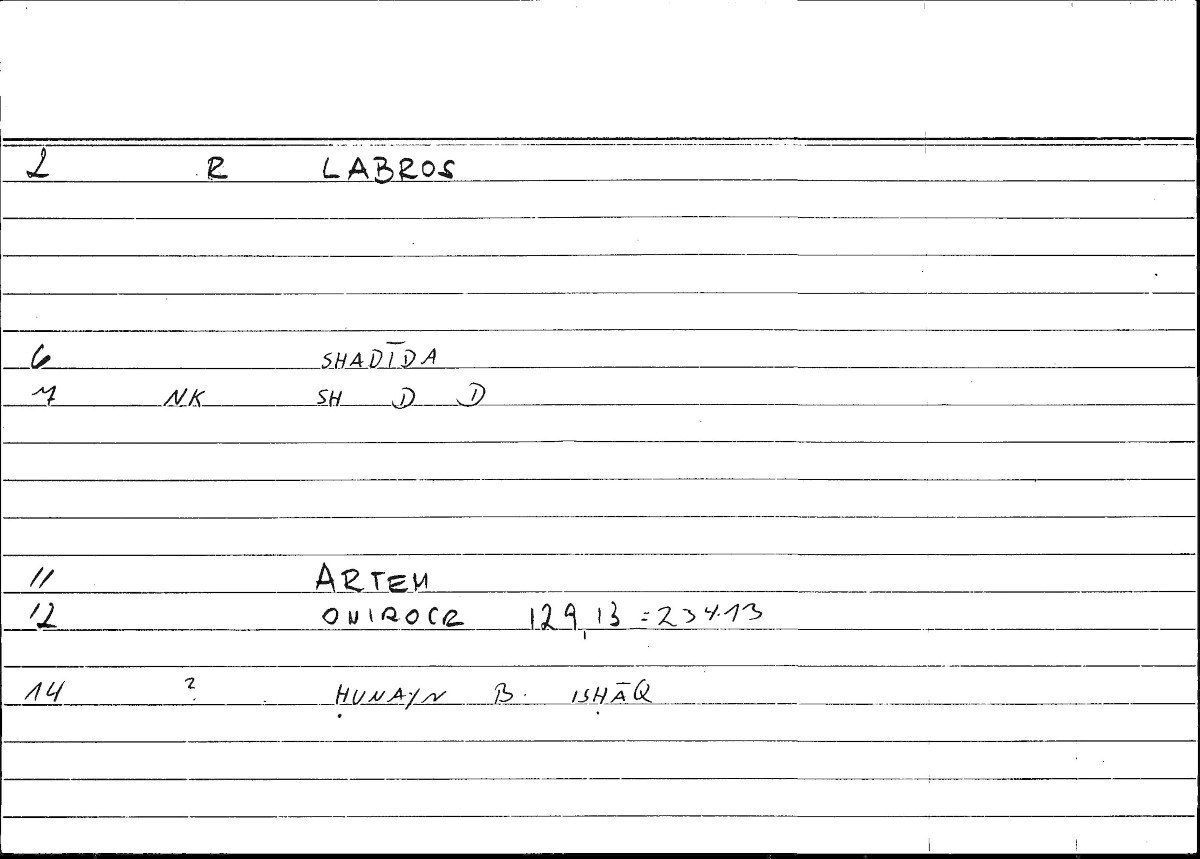 2 R LABROS
6 SHADĪDA
7 NK SH D D
11 ARTEM
12 ONIROCR 129,13 = 234.13
14 ? ḤUNAYN B. ISḤĀQ